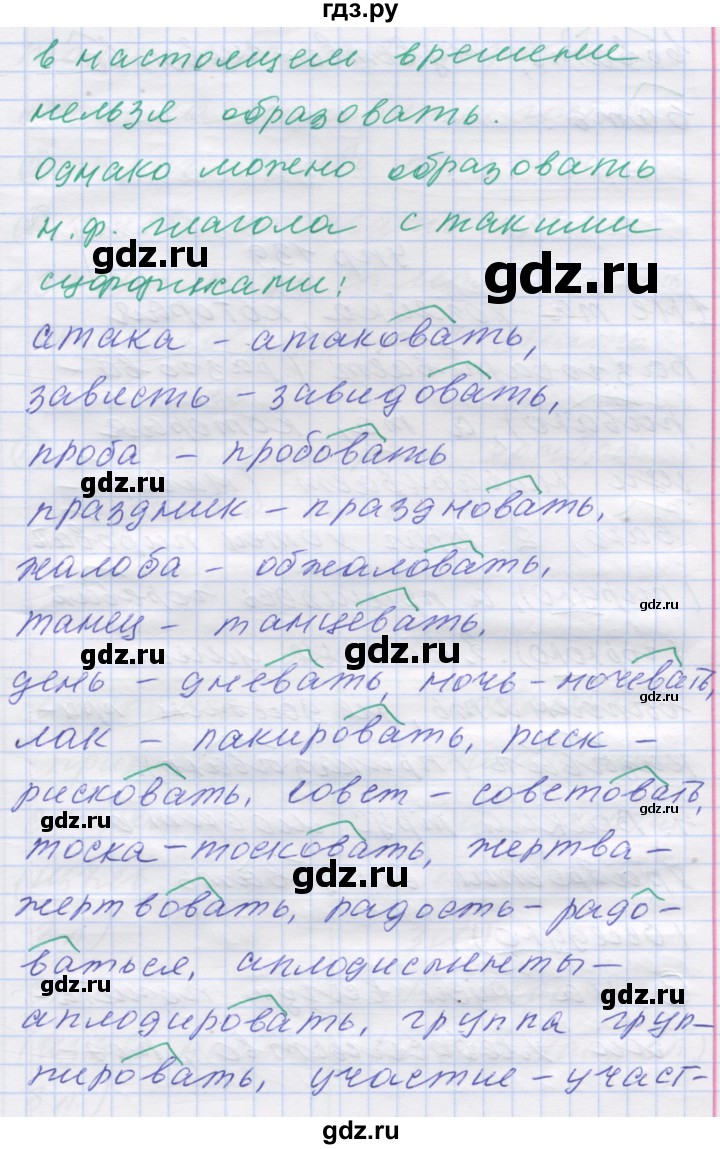 гдз.ру
в настоящем времени
нельзя образовать.
однако можно образовать
н.ф. глагола с такими
gdz.ru
gdz.ru
суффиксами:
атака - атаковать,
зависть - завидовать,
проба - пробовать
gdz.ru
gdz.ru
праздник - праздновать,
жалоба - обжаловать,
gdz.ru
танец - танцевать,
gdz.ru
gdz.ru
день - дневать, ночь - ночевать,
gdz.ru
лак - лакировать, риск -
рисковать, совет - советовать,
gdz.ru
gdz.ru
тоска - тосковать, жертва -
gdz.ru
жертвовать, радость - радо-
ваться, аплодисменты -
gdz.ru
gdz.ru
аплодировать, группа груп-
пировать, участие - участ-
gdz.ru
gdz.ru